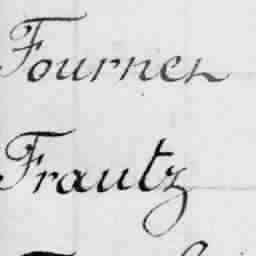 Fournen
Frautz